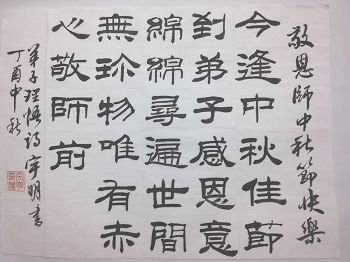 敬恩師中秋節快樂
今逢中秋佳節
到弟子感恩意
綿綿尋遍世間
無珍物唯有赤
心敬師前
弟子理悟詩宇明書
丁酉中秋